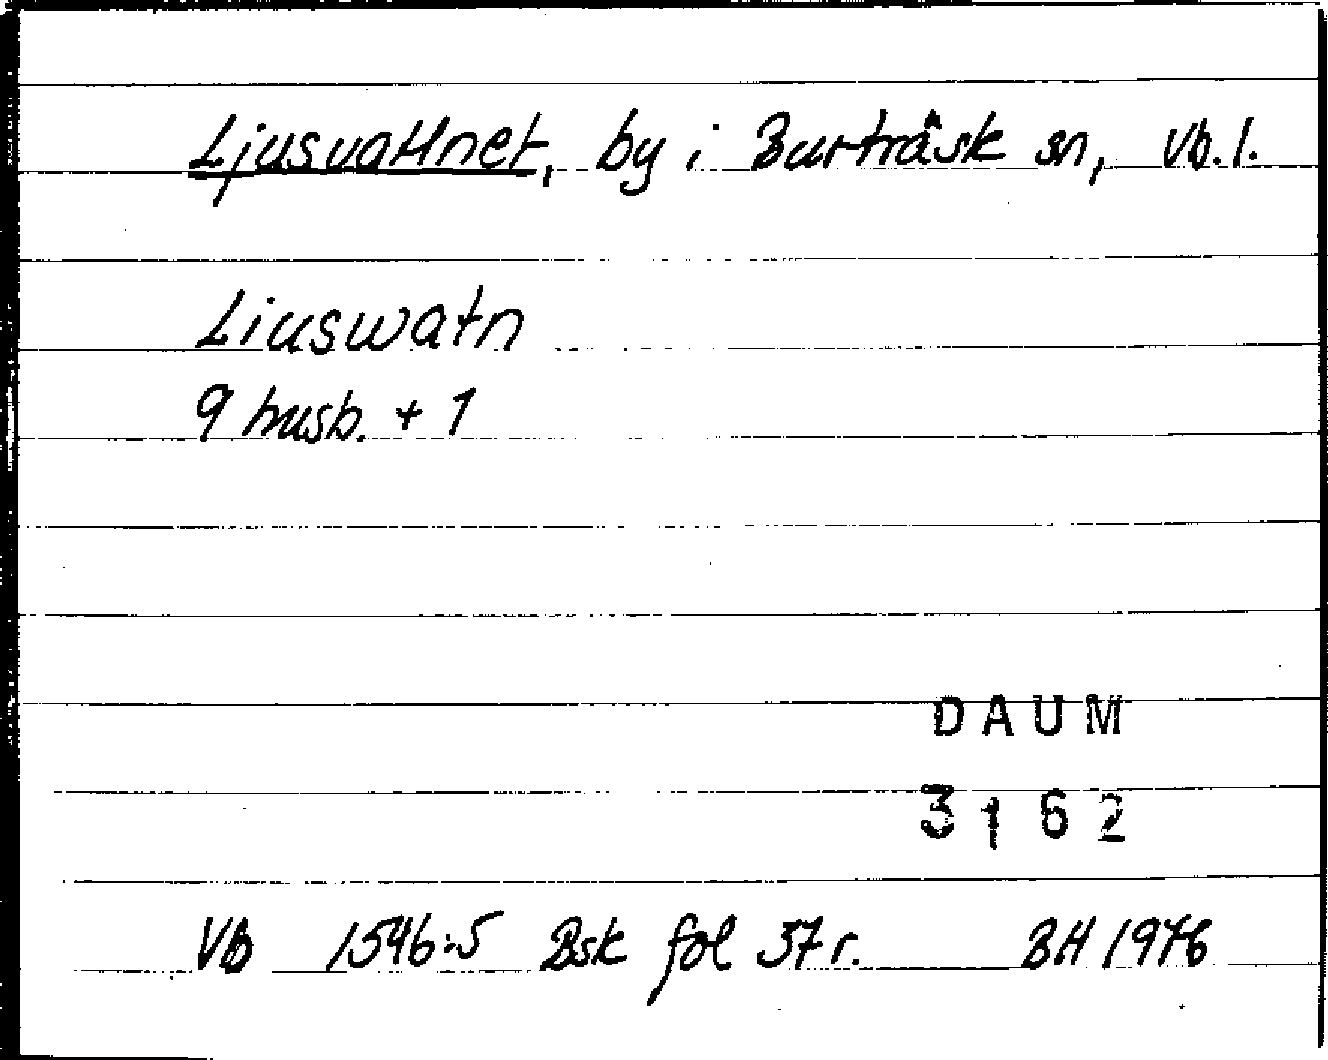 Ljusvattnet, by i Burträsk sn, Vb. l.
Liuswatn
9 husb. + 1
DAUM
3162
Vb 1546:5 Bsk fol 37 r. BH 1976